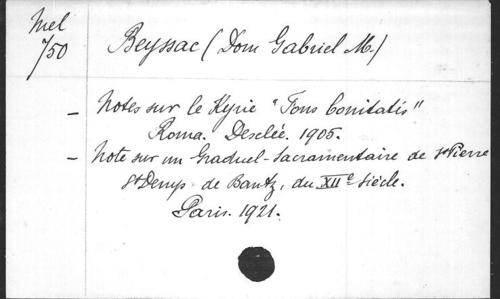 Mel
750
Beyssac (Dom Gabriel M.)
- Notes sur le Kyrie "Fons bonitatis"
Roma. Desclée. 1905.
- Note sur un Graduel-Sacramentaire de St Pierre
St Denys de Bantz, du XIIe Siècle.
Paris. 1921.